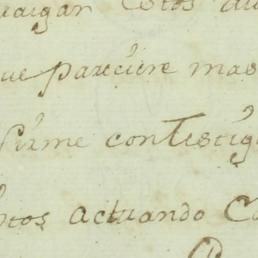 vaigan estos au
ue pareciere mas
firme con Testig
ntos actuando Co